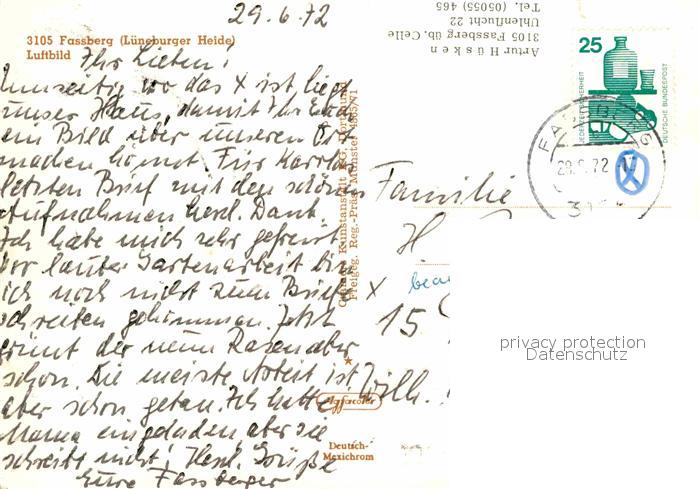 29.6.72
3105 Fassberg (Lüneburger Heide)
Luftbild
Ihr Lieben!
Umseitig wo das X ist, liegt
unser Haus, damit Ihr Euch
ein Bild über unseren Ort
machen könnt. Für Karte
letzten Brief mit den schönen
Aufnahmen herzl. Dank.
Ich habe mich sehr gefreut.
Vor lauter Gartenarbeit bin
ich noch nicht zum Brief
schreiben gekommen. Jetzt
grünt der neue Rasen aber
schon. Die meiste Arbeit ist
aber schon getan. Ich hatte
Mama eingeladen, aber sie
schreibt nicht! Herzl. Grüße
Eure Fassberger
Artur Hüsken
3105 Fassberg üb. Celle
Uhlenflucht 22
Tel. (05055) 465
25
JEDERZEIT SICHERHEIT
DEUTSCHE BUNDESPOST
FASSBERG
72
Familie
H
X
15
Willh.
Agfacolor
Deutsch-
Mexichrom
privacy protection
Datenschutz